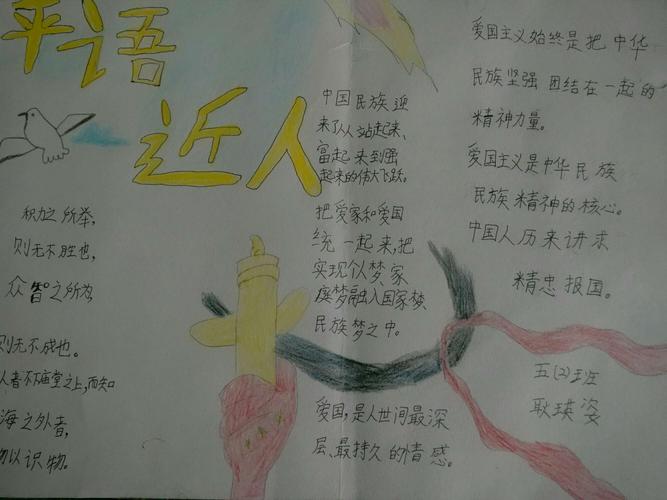 平语
近人
积力之所举,
则无不胜也,
众智之所为
则无不成也。
人者不庙堂之上,而知
海之外者,
物以识物。
中国民族迎
来了从站起来、
富起来到强
起来的伟大飞跃。
把爱家和爱国
统一起来,把
实现个人梦家
庭梦融入国家梦
民族梦之中。
爱国,是人世间最深
层、最持久的情感。
爱国主义始终是把中华
民族坚强团结在一起的
精神力量。
爱国主义是中华民族
民族精神的核心。
中国人历来讲求
精忠报国。
五(2)班
耿瑛姿